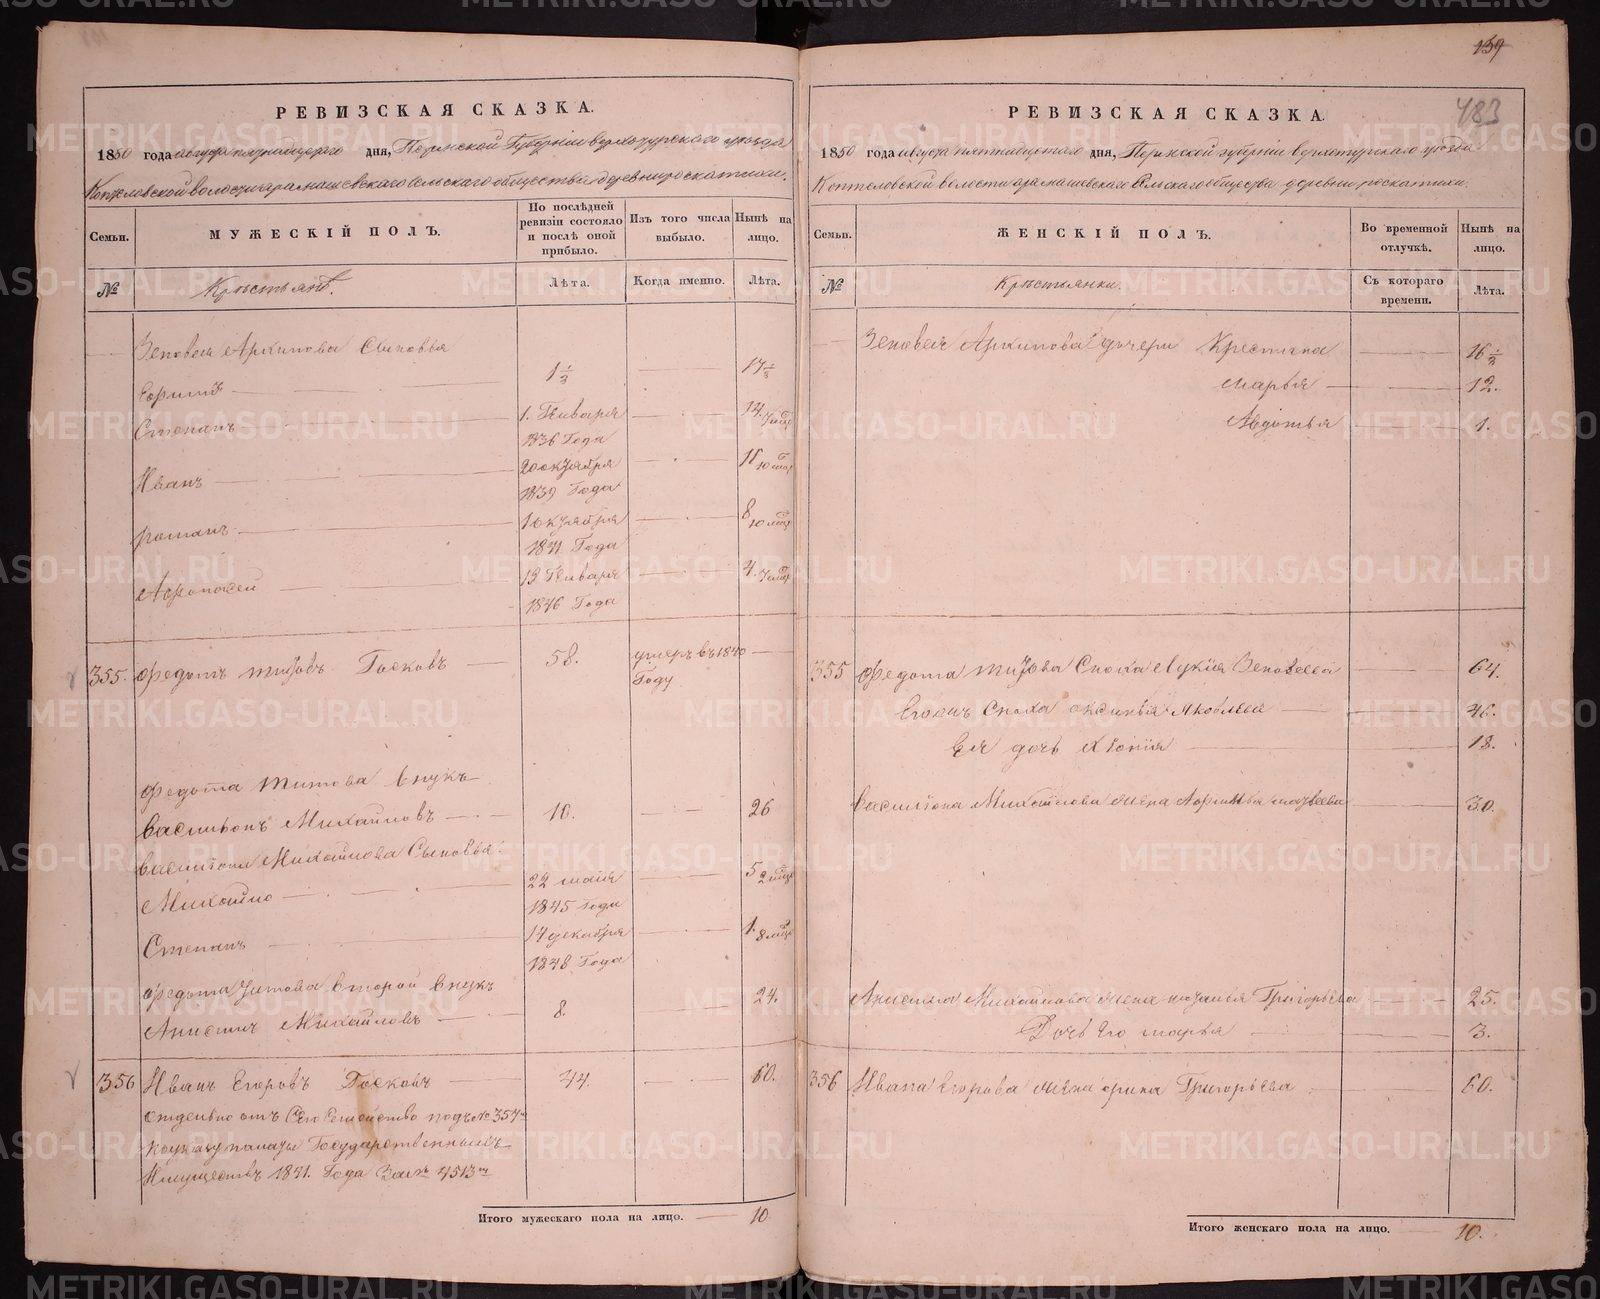 159
РЕВИЗСКАЯ СКАЗКА.
1850 года августа пятнадцатого дня, Пермской Губернии верхотурского уезда
Коптеловской волости арамашевского сельского общества деревни роскатихи.
Семьи.
МУЖЕСКІЙ ПОЛЪ.
По послѣдней ревизіи состояло и послѣ оной прибыло.
Изъ того числа выбыло.
Нынѣ на лицо.
№
Крестьянъ.
Лѣта.
Когда именно.
Лѣта.
Зеновея Архипова Сыновья
1 1/2
17 1/2
Степанъ
1. Генваря
1836 Года
14. 7 мцо
Иванъ
20 октября
1839 Года
11 10 мцо
романъ
1 октября
1841 Года
8 10 мцо
Афонасей
13 Генваря
1846 Года
4. 7 мцо
355. Федотъ титовъ Госковъ
58.
умеръ въ 1840
Году
Федота титова внукъ
Михаиловъ
10.
26
Михаилова Сыновья
Михайло
22 маия
1845 Года
5 2 мцо
Степанъ
14 декабря
1848 Года
1. 8 мцо
Федота титова второй внукъ
Анисимъ Михаиловъ
8.
24.
356 Иванъ Егоровъ Госковъ
44.
60.
отделено отъ Сего Семейство подъ № 357мъ
по указу палаты Государственныхъ
Имуществъ 1841. Года За № 4513мъ
Итого мужескаго пола на лицо.
10
РЕВИЗСКАЯ СКАЗКА.
483
1850 года августа пятнадцатого дня, Пермской губернии верхотурского уезда
Коптеловской волости арамашевского Сельского общества деревни роскатихи.
Семьи.
ЖЕНСКІЙ ПОЛЪ.
Во временной отлучкѣ.
Нынѣ на лицо.
№
Крестьянки.
Съ котораго времени.
Лѣта.
Зеновея Архипова дочери Крестина
16 1/2
марья
12.
Авдотья
1.
355 Федота титова Сноха Лукия Зеновеева
64.
Сноха Яковлева
46.
Ея дочь
18.
Михаилова жена
30.
Анисима Михаилова жена Григорьева
25.
Дочь Его марья
3.
356 Ивана Егорова жена орина Григорьева
60.
Итого женскаго пола на лицо.
10.
METRIKI.GASO-URAL.RU